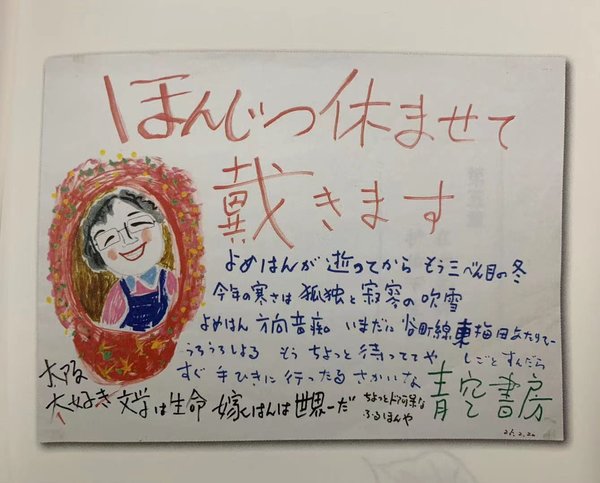 ほんじつ休ませて
戴きます
よめはんが逝ってから もう三べん目の冬
今年の寒さは 孤独と寂寥の吹雪
よめはん 方向音痴。いまだに 谷町線東梅田あたりで
うろうろしよる もう ちょっと待っててや しごとすんだら
すぐ手ひきに行ったるさかいな
大阪
大好き 文学は生命 嫁はんは世界一だ
ちょっとドアホな
ふるほんや
青空書房